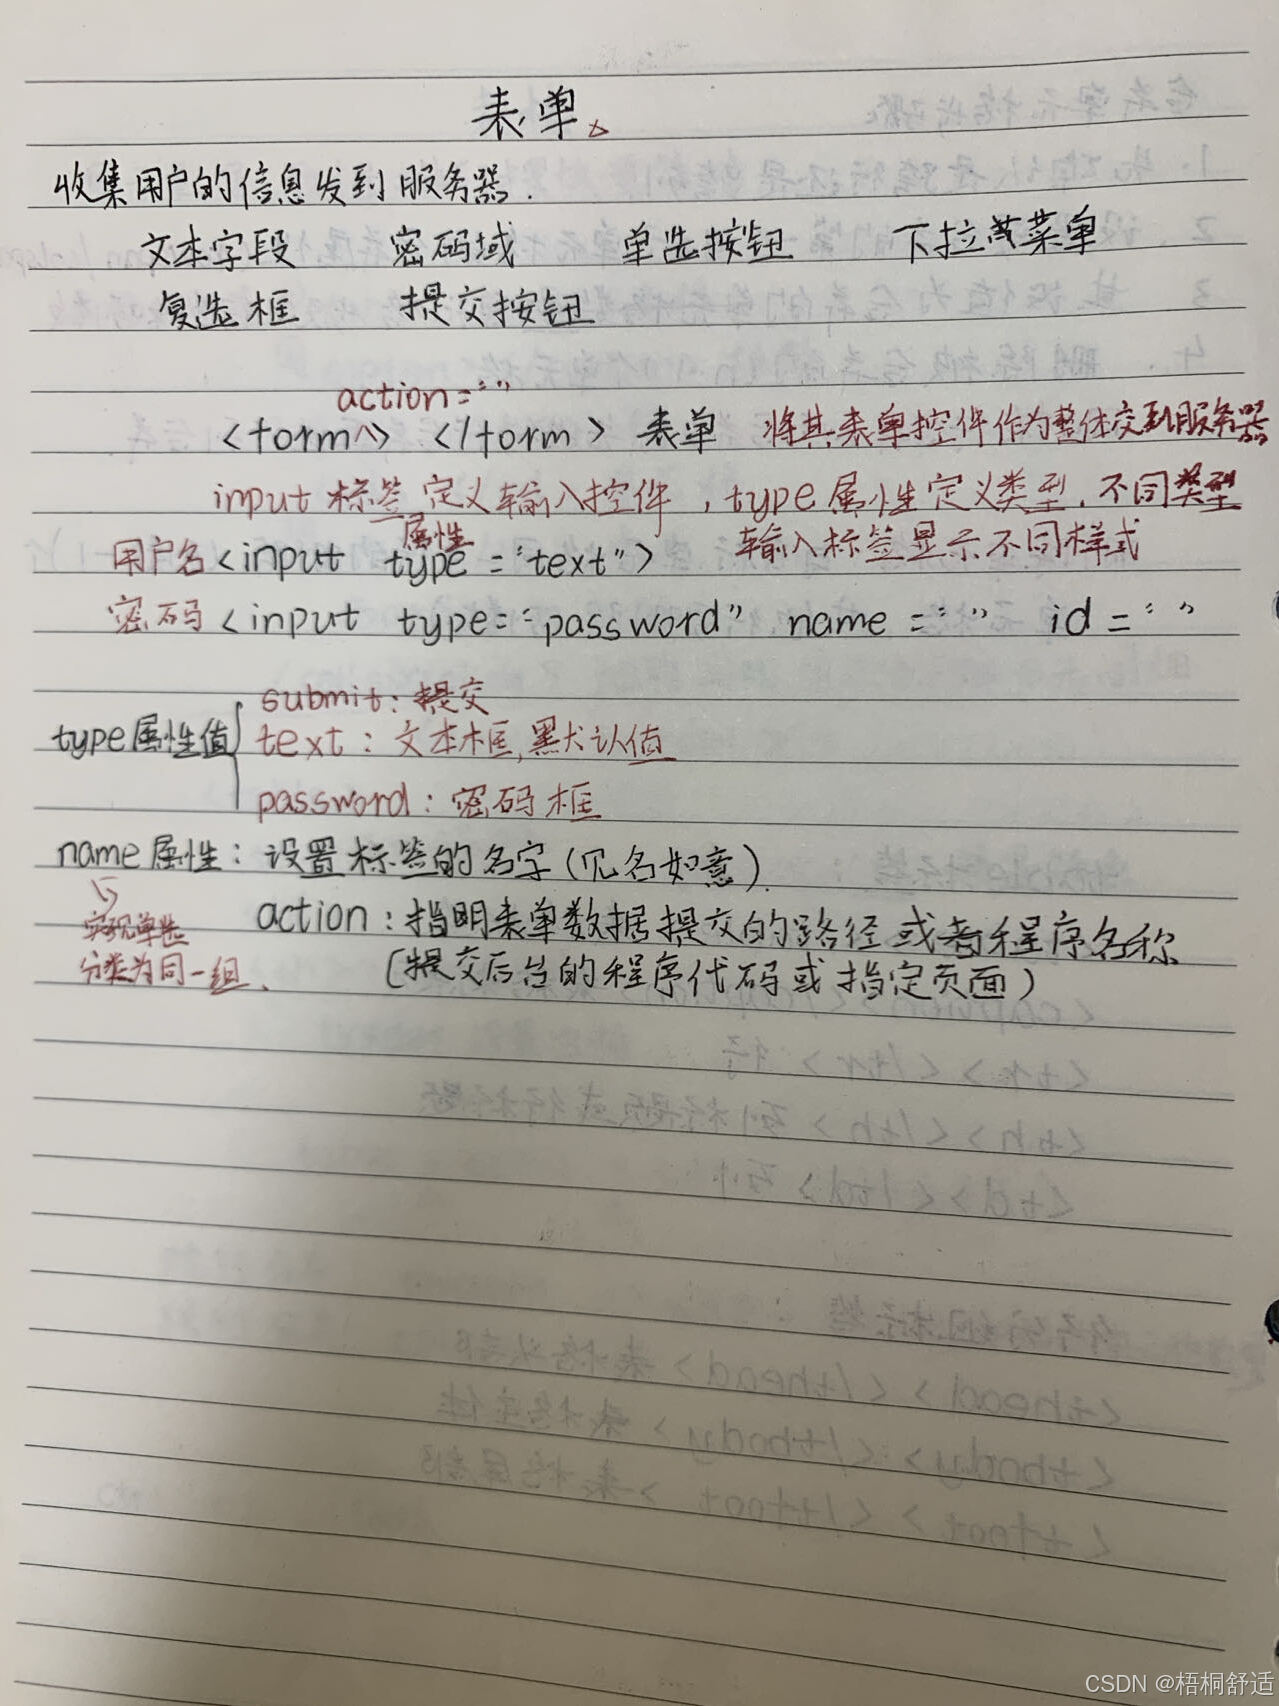 表单
收集用户的信息发到服务器.
文本字段 密码域 单选按钮 下拉菜单
复选框 提交按钮
action=“”
<form> </form> 表单 将其表单控件作为整体交到服务器
input 标签 定义输入控件，type属性定义类型，不同类型
属性 输入标签显示不同样式
用户名<input type=“text”>
密码<input type=“password” name=“” id=“”
submit: 提交
type属性值 text: 文本框,默认值
password: 密码框
name属性: 设置标签的名字(见名如意).
实现单选 action: 指明表单数据提交的路径或者程序名称
分类为同一组、 (提交后台的程序代码或指定页面)
CSDN @梧桐舒适